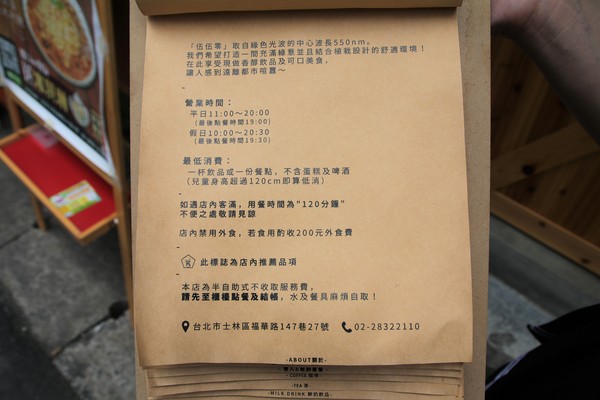 「伍伍零」取自綠色光波的中心波長550nm。
我們希望打造一間充滿綠意並且結合植栽設計的舒適環境！
在此享受現做香醇飲品及可口美食，
讓人感到遠離都市喧囂～
-
營業時間：
平日11:00～20:00
（最後點餐時間19:00）
假日10:00～20:30
（最後點餐時間19:30）
最低消費：
一杯飲品或一份餐點，不含蛋糕及啤酒
（兒童身高超過120cm即算低消）
-
如遇店內客滿，用餐時間為"120分鐘"
不便之處敬請見諒
店內禁用外食，若食用酌收200元外食費
-
此標誌為店內推薦品項
-
本店為半自助式不收取服務費，
請先至櫃檯點餐及結帳，水及餐具麻煩自取！
台北市士林區福華路147巷27號
02-28322110
-ABOUT關於-
-COFFEE 咖啡-
-TEA 茶-
-MILK DRINK 鮮奶飲品-